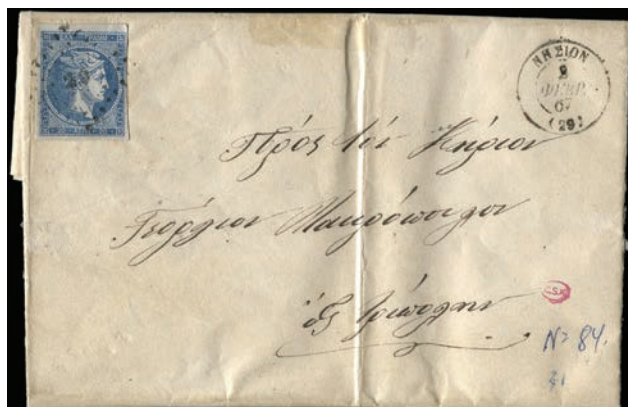 ΝΗΣΙΟΝ
2
ΦΕΒΡ.
67
(29)
29
Πρὸς τὸν Κύριον
Γεώργιον Μακρόπουλον
εἰς Τρίπολιν
CSK
Nº 84.